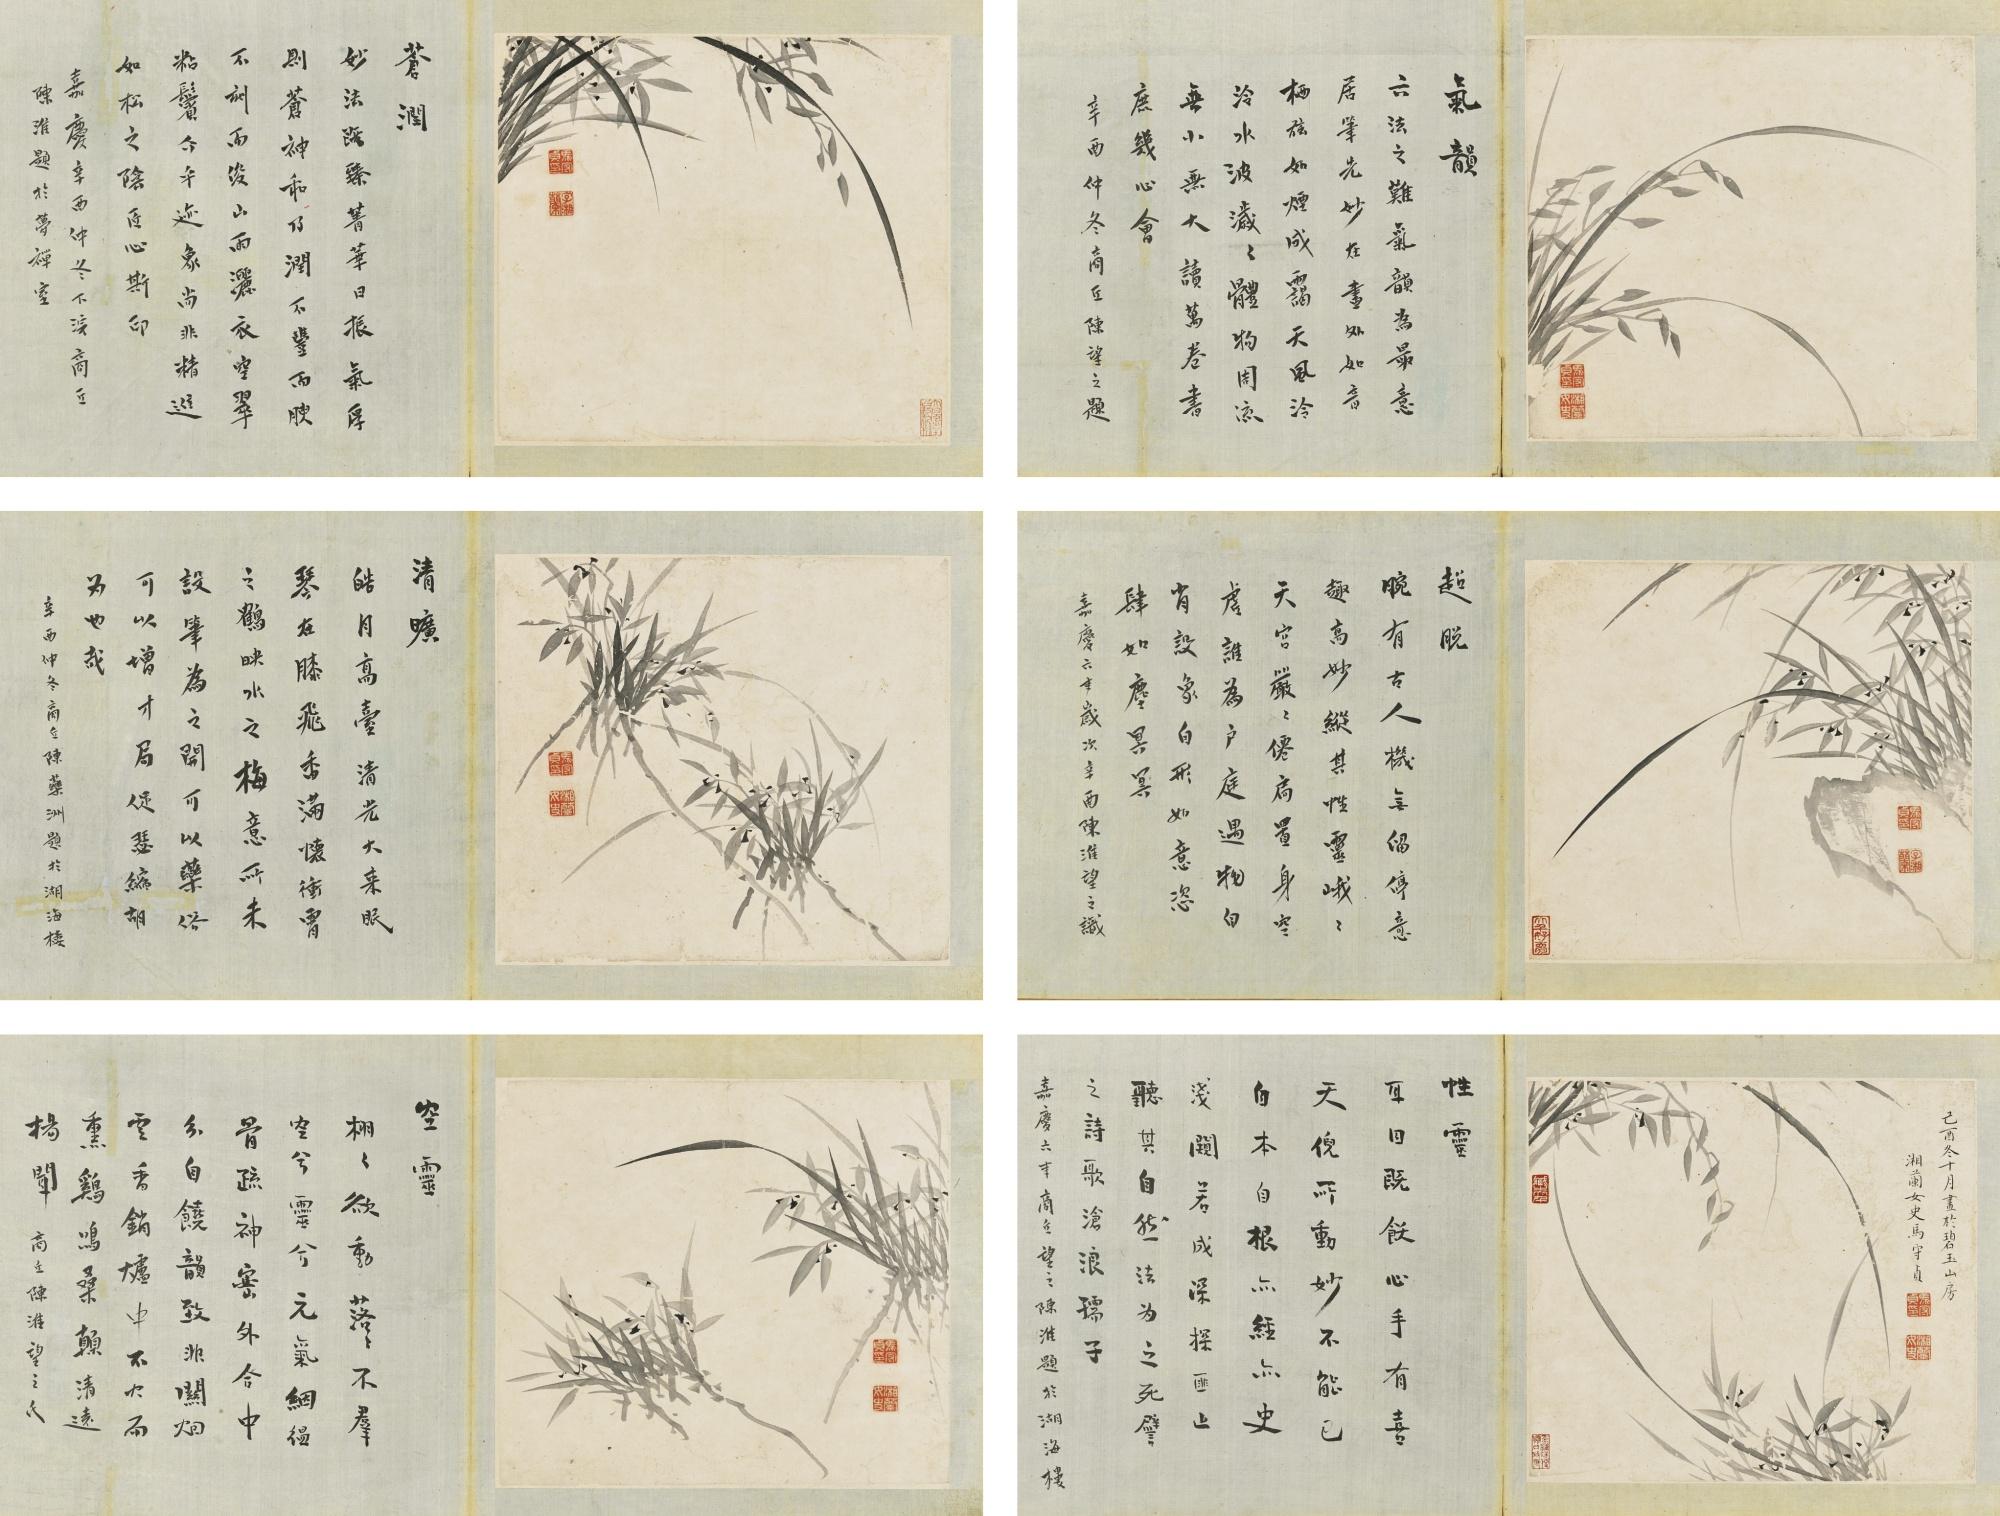 氣韻
六法之難氣韻為最意
居筆先妙在畫外如音
栖絃如煙成靄天風泠
泠水波濊〻體物周流
無小無大讀萬卷書
庶幾心會
辛酉仲冬商丘陳望之題
蒼潤
妙法既臻菁華日振氣厚
則蒼神和乃潤不豐而腴
不刻而俊山雨灑衣空翠
粘鬢介乎迹象尚非精進
如松之陰匠心斯印
嘉慶辛酉仲冬下浣商丘
陳淮題於夢禪室
超脫
腕有古人機無留停意
趣高妙縱其性靈峨〻
天宮嚴〻僊扃置身空
虛誰為戶庭遇物自
肖設象自形如意恣
肆如塵冥冥
嘉慶六年歲次辛酉陳淮望之識
清曠
皓月高臺清光大來眠
琴在膝飛香滿懷衝霄
之鶴映水之梅意所未
設筆為之開可以藥俗
可以增才局促瑟縮胡
為也哉
辛酉仲冬商丘陳藥洲題於湖海樓
己酉冬十月畫於碧玉山房
湘蘭女史馬守貞
性靈
耳目既飫心手有喜
天倪所動妙不能已
自本自根亦經亦史
淺闚若成深探匪止
聽其自然法為之死譬
之詩歌滄浪孺子
嘉慶六年商丘望之陳淮題於湖海樓
空靈
栩〻欲動落〻不羣
空兮靈兮元氣絪縕
骨疏神密外合中
分自饒韻致非關烟
雲香銷爐中不火而
熏鷄鳴桑顛清遠
楊聞
商丘陳淮望之氏